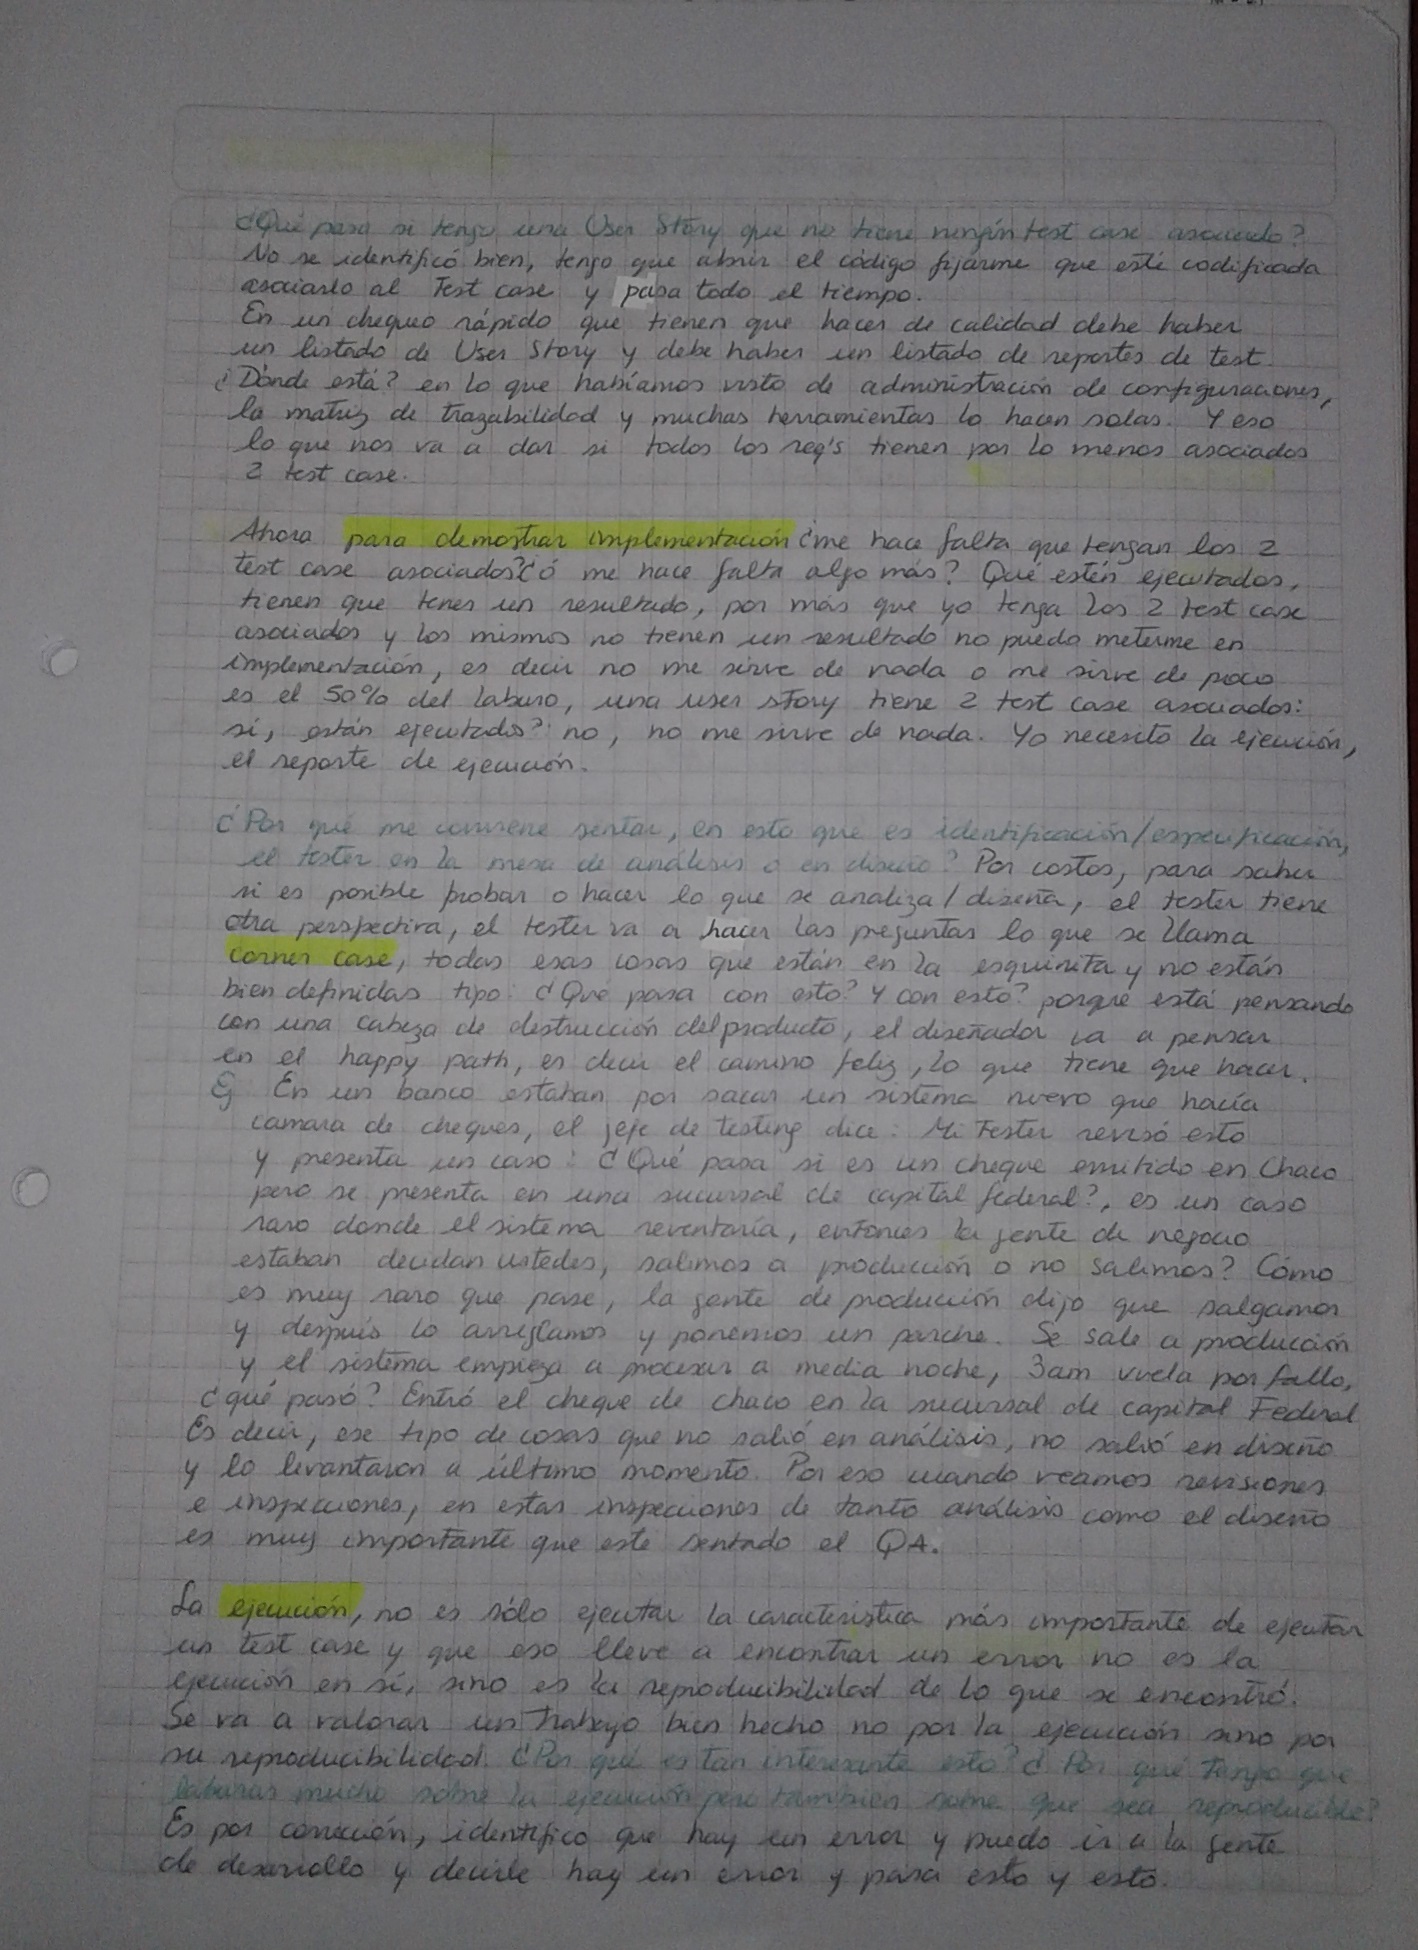 ¿Qué pasa si tengo una User Story que no tiene ningún test case asociado?
No se identificó bien, tengo que abrir el código fijarme que esté codificada
asociarlo al Test case y pasa todo el tiempo.
En un chequeo rápido que tienen que hacer de calidad debe haber
un listado de User Story y debe haber un listado de reportes de test.
¿Dónde está? en lo que habíamos visto de administración de configuraciones,
la matriz de trazabilidad y muchas herramientas lo hacen solas. Y eso
lo que nos va a dar si todos los req's tienen por lo menos asociados
2 test case.
Ahora para demostrar implementación ¿me hace falta que tengan los 2
test case asociados? ¿ó me hace falta algo más? Qué estén ejecutados,
tienen que tener un resultado, por más que yo tenga los 2 test case
asociados y los mismos no tienen un resultado no puedo meterme en
implementación, es decir no me sirve de nada o me sirve de poco
es el 50% del laburo, una user story tiene 2 test case asociados:
sí, están ejecutados? no, no me sirve de nada. Yo necesito la ejecución,
el reporte de ejecución.
¿Por qué me conviene sentar, en esto que es identificación/especificación,
el tester en la mesa de análisis o en diseño? Por costos, para saber
si es posible probar o hacer lo que se analiza/diseña, el tester tiene
otra perspectiva, el tester va a hacer las preguntas lo que se llama
corner case, todas esas cosas que están en la esquinita y no están
bien definidas tipo: ¿Qué pasa con esto? Y con esto? porque está pensando
con una cabeza de destrucción del producto, el diseñador va a pensar
en el happy path, es decir el camino feliz, lo que tiene que hacer.
Ej En un banco estaban por sacar un sistema nuevo que hacía
camara de cheques, el jefe de testing dice: Mi Tester revisó esto
y presenta un caso: ¿Qué pasa si es un cheque emitido en Chaco
pero se presenta en una sucursal de capital federal?, es un caso
raro donde el sistema reventaría, entonces la gente de negocio
estaban decidan ustedes, salimos a producción o no salimos? Cómo
es muy raro que pase, la gente de producción dijo que salgamos
y después lo arreglamos y ponemos un parche. Se sale a producción
y el sistema empieza a procesar a media noche, 3am vuela por fallo,
¿qué pasó? Entró el cheque de chaco en la sucursal de capital Federal
Es decir, ese tipo de cosas que no salió en análisis, no salió en diseño
y lo levantaron a último momento. Por eso cuando veamos revisiones
e inspecciones, en estas inspecciones de tanto análisis como el diseño
es muy importante que esté sentado el QA.
La ejecución, no es sólo ejecutar la característica más importante de ejecutar
un test case y que eso lleve a encontrar un error no es la
ejecución en sí, sino es la reproducibilidad de lo que se encontró.
Se va a valorar un trabajo bien hecho no por la ejecución sino por
su reproducibilidad. ¿Por qué es tan interesante esto? ¿Por qué tengo que
laburar mucho sobre la ejecución pero también sobre que sea reproducible?
Es por corrección, identifico que hay un error y puedo ir a la gente
de desarrollo y decirle hay un error y pasa esto y esto.